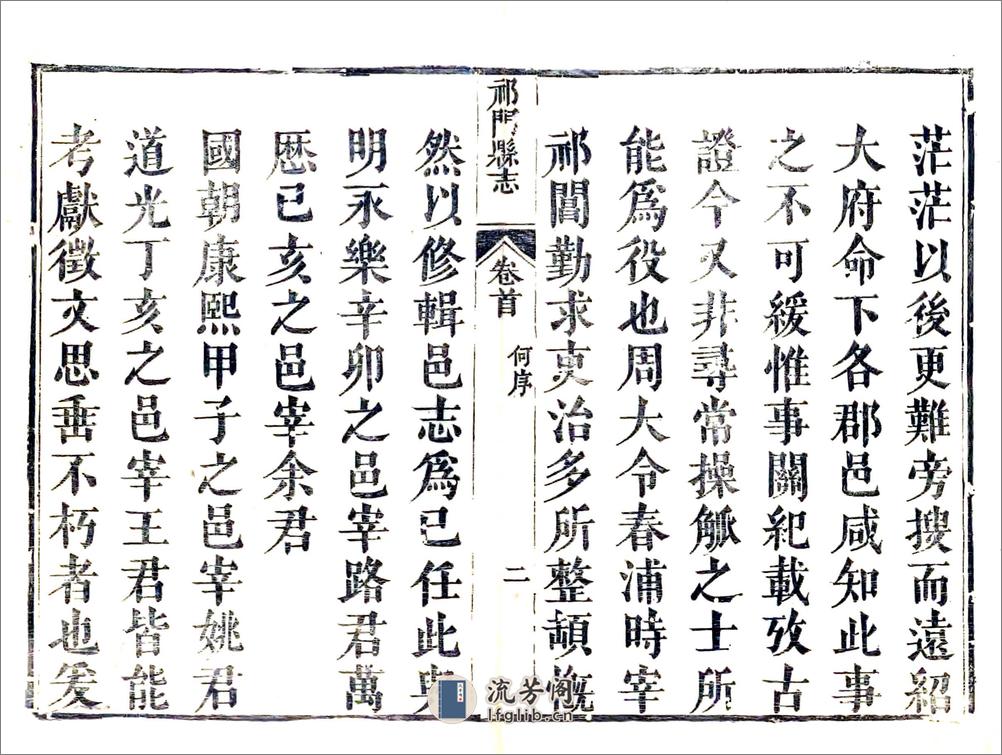 茫茫以後更難旁搜而遠紹
大府命下各郡邑咸知此事
之不可緩惟事關紀載攷古
證今又非尋常操觚之士所
能爲役也周大令春浦時宰
祁閶勤求吏治多所整頓慨
祁門縣志
卷首
何序
二
然以修輯邑志爲己任此與
明永樂辛卯之邑宰路君萬
厯己亥之邑宰余君
國朝康熙甲子之邑宰姚君
道光丁亥之邑宰王君皆能
考獻徵文思垂不朽者也爰
流芳阁
lfglib.cn